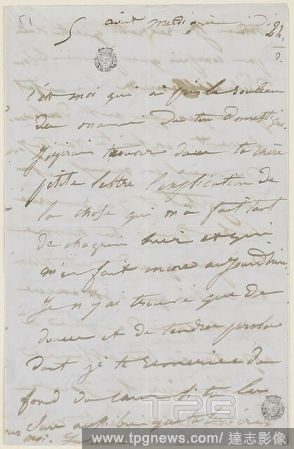 51
5 août
c'est moi qui ai pris le rouleau
de
j'espérais trouver dans ta chère
petite lettre l'explication de
la chose qui m'a fait tant
de chagrin hier et qui
m'en fait encore aujourd'hui
Je n'y ai trouvé que de
douces et de tendres paroles
dont je te remercie du
fond du cœur si tu les
TPG
www.tpgnews.com / 達志影像